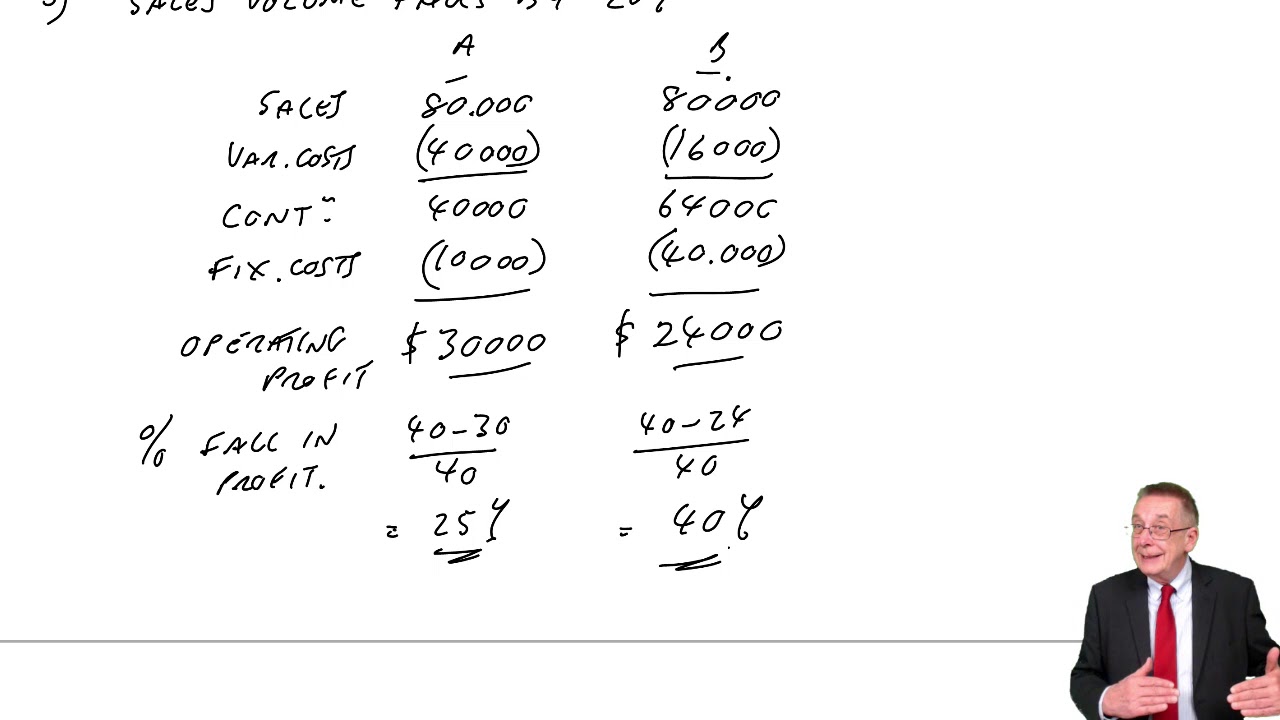 SALES VOLUME FALLS BY 20%
A B.
SALES 80.000 80000
VAR. COSTS (40000) (16000)
CONTN 40000 64000
FIX. COSTS (10000) (40.000)
OPERATING PROFIT $30000 $24000
% FALL IN PROFIT. 40-30 / 40 40-24 / 40
= 25% = 40%